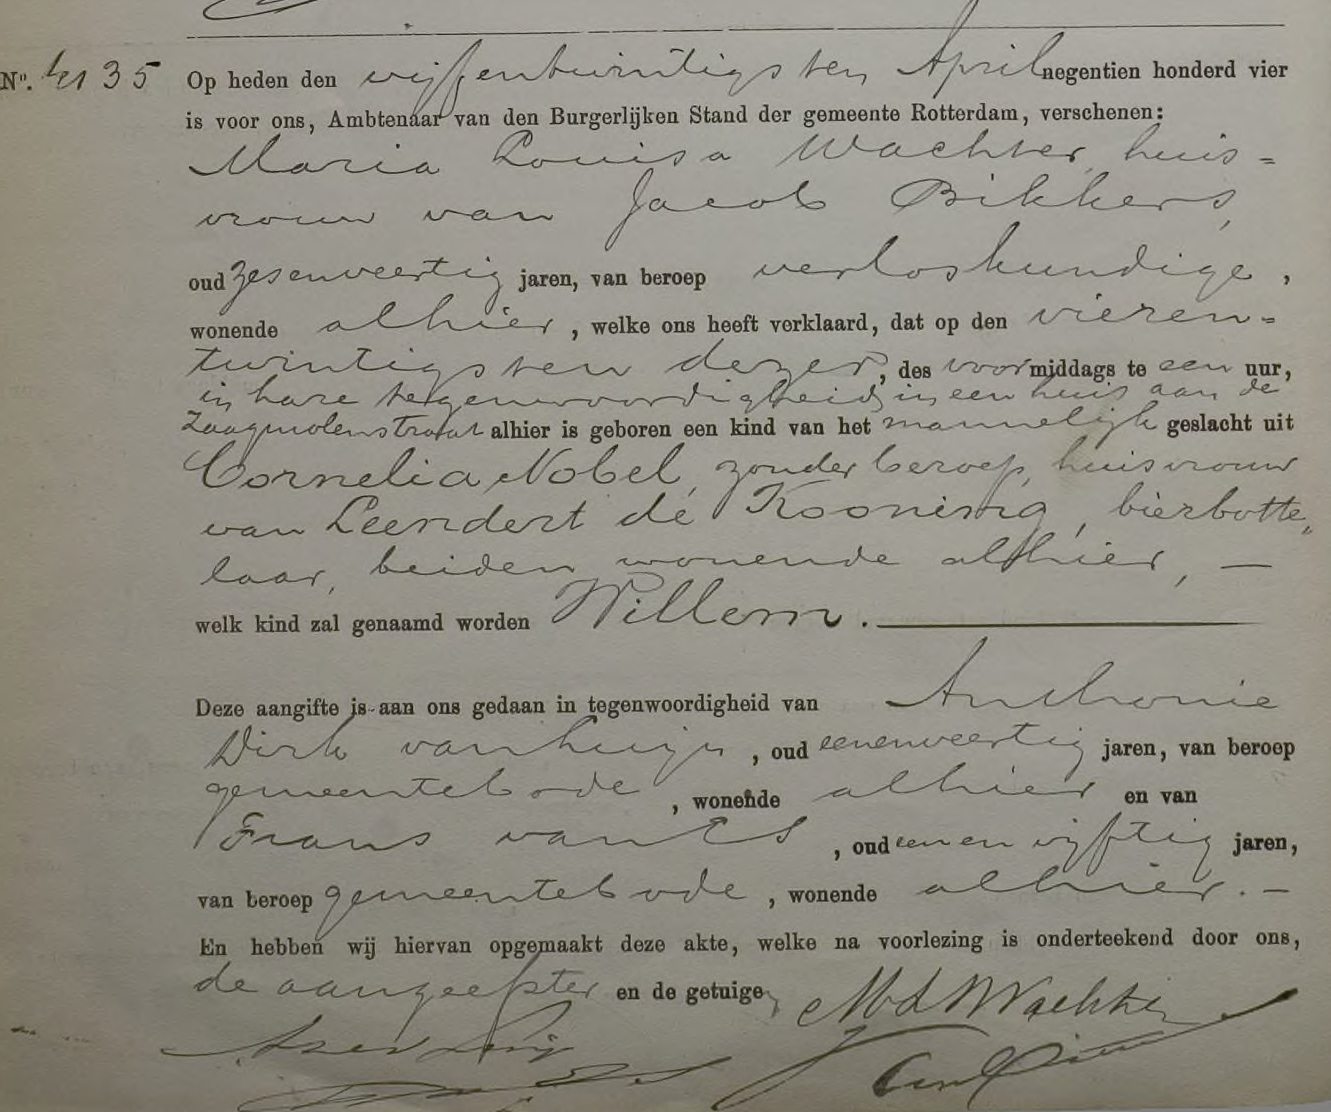 Nº. 4135 Op heden den vijfentwintigsten April negentien honderd vier
is voor ons, Ambtenaar van den Burgerlijken Stand der gemeente Rotterdam, verschenen:
Maria Louisa Wachter, huis=
vrouw van Jacob Bikkers,
oud zesenveertig jaren, van beroep verloskundige,
wonende alhier, welke ons heeft verklaard, dat op den vieren=
twintigsten dezer, des voormiddags te een uur,
in hare tegenwoordigheid, in een huis aan de
Zaagmolenstraat alhier is geboren een kind van het mannelijk geslacht uit
Cornelia Nobel, zonder beroep, huisvrouw
van Leendert de Kooning, bierbotte„
laar, beiden wonende alhier, —
welk kind zal genaamd worden Willem.
Deze aangifte is aan ons gedaan in tegenwoordigheid van Anthonie
Dirk van, oud eenenveertig jaren, van beroep
gemeentebode, wonende alhier en van
Frans van Es, oud eenenvijftig jaren,
van beroep gemeentebode, wonende alhier. —
En hebben wij hiervan opgemaakt deze akte, welke na voorlezing is onderteekend door ons,
de aangeefster en de getuigen
Wachter